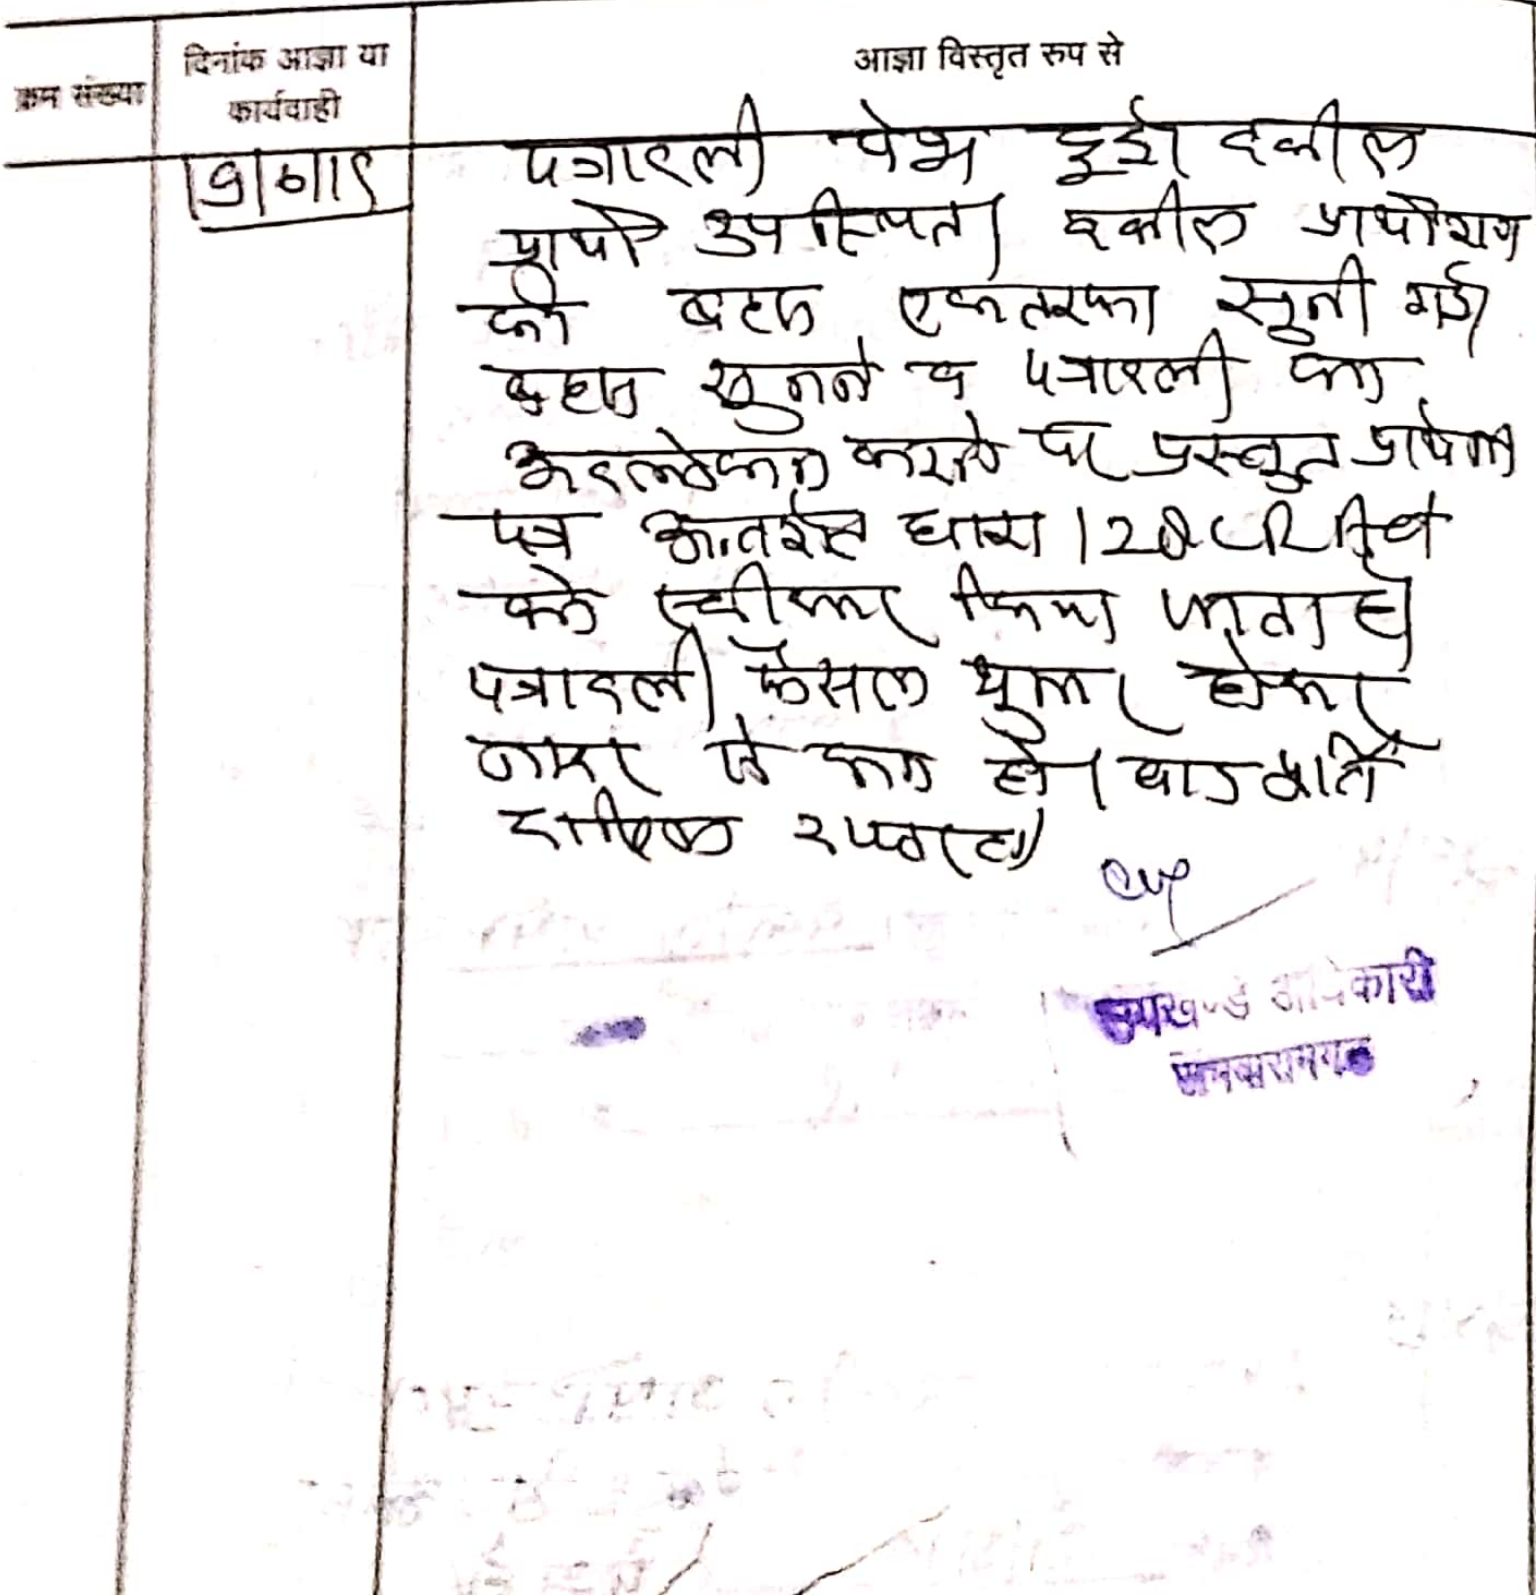 क्रम संख्या
दिनांक आज्ञा या
कार्यवाही
आज्ञा विस्तृत रुप से
पत्रावली पेश हुई। वकील
प्रार्थी उपस्थित। वकील प्रार्थीगण
की बहस एकतरफा सुनी गई।
बहस सुनने व पत्रावली का
अवलोकन करने पर प्रस्तुत प्रार्थना
पत्र अन्तर्गत धारा
को स्वीकार किया जाता है।
पत्रावली फैसल शुमार होकर
नम्बर से कम हो।
दाखिल दफ्तर हो।
उपखण्ड अधिकारी